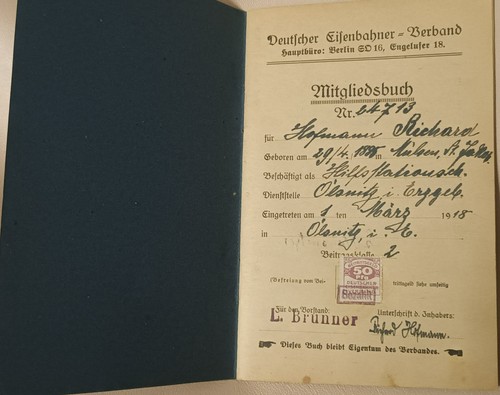 Deutscher Eisenbahner-Verband
Hauptbüro: Berlin SO 16, Engelufer 18.
Mitgliedsbuch
Nr. 24713
für Hofmann Richard
Geboren am 29/4. in Mülsen, St. Jakob
Beschäftigt als Hilfsstationssch.
Dienststelle Ölsnitz i. Erzgeb.
Eingetreten am 1 ten März 1918
in Ölsnitz, i. E.
Beitragsklasse 2
(Befreiung vom Bei- siehe umseitig
50
Pfg
DEUTSCHER
Bezahlt
Für den Vorstand: Unterschrift d. Inhabers:
L. Brunner Richard Hofmann.
Dieses Buch bleibt Eigentum des Verbandes.